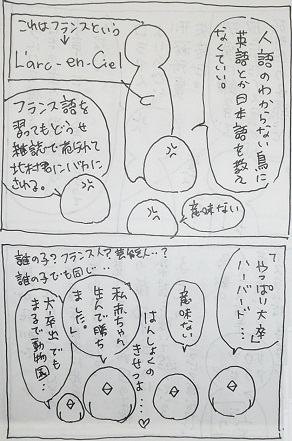 人語のわからない鳥に
英語とか日本語を教え
なくていい。
これはフランスという
L'arc-en-Ciel
フランス語を
習ってもどうせ
雑誌で
北村君にバカに
される。
意味ない
誰の子?フランス人?芸能人…?
誰の子でも同じ…
「やっぱり大卒」
ハーバード…
意味ない
はんしょくの
きせつよ…♡
私赤ちゃん
生んで勝ち
ました。」
大卒出でも
まるで動物園…